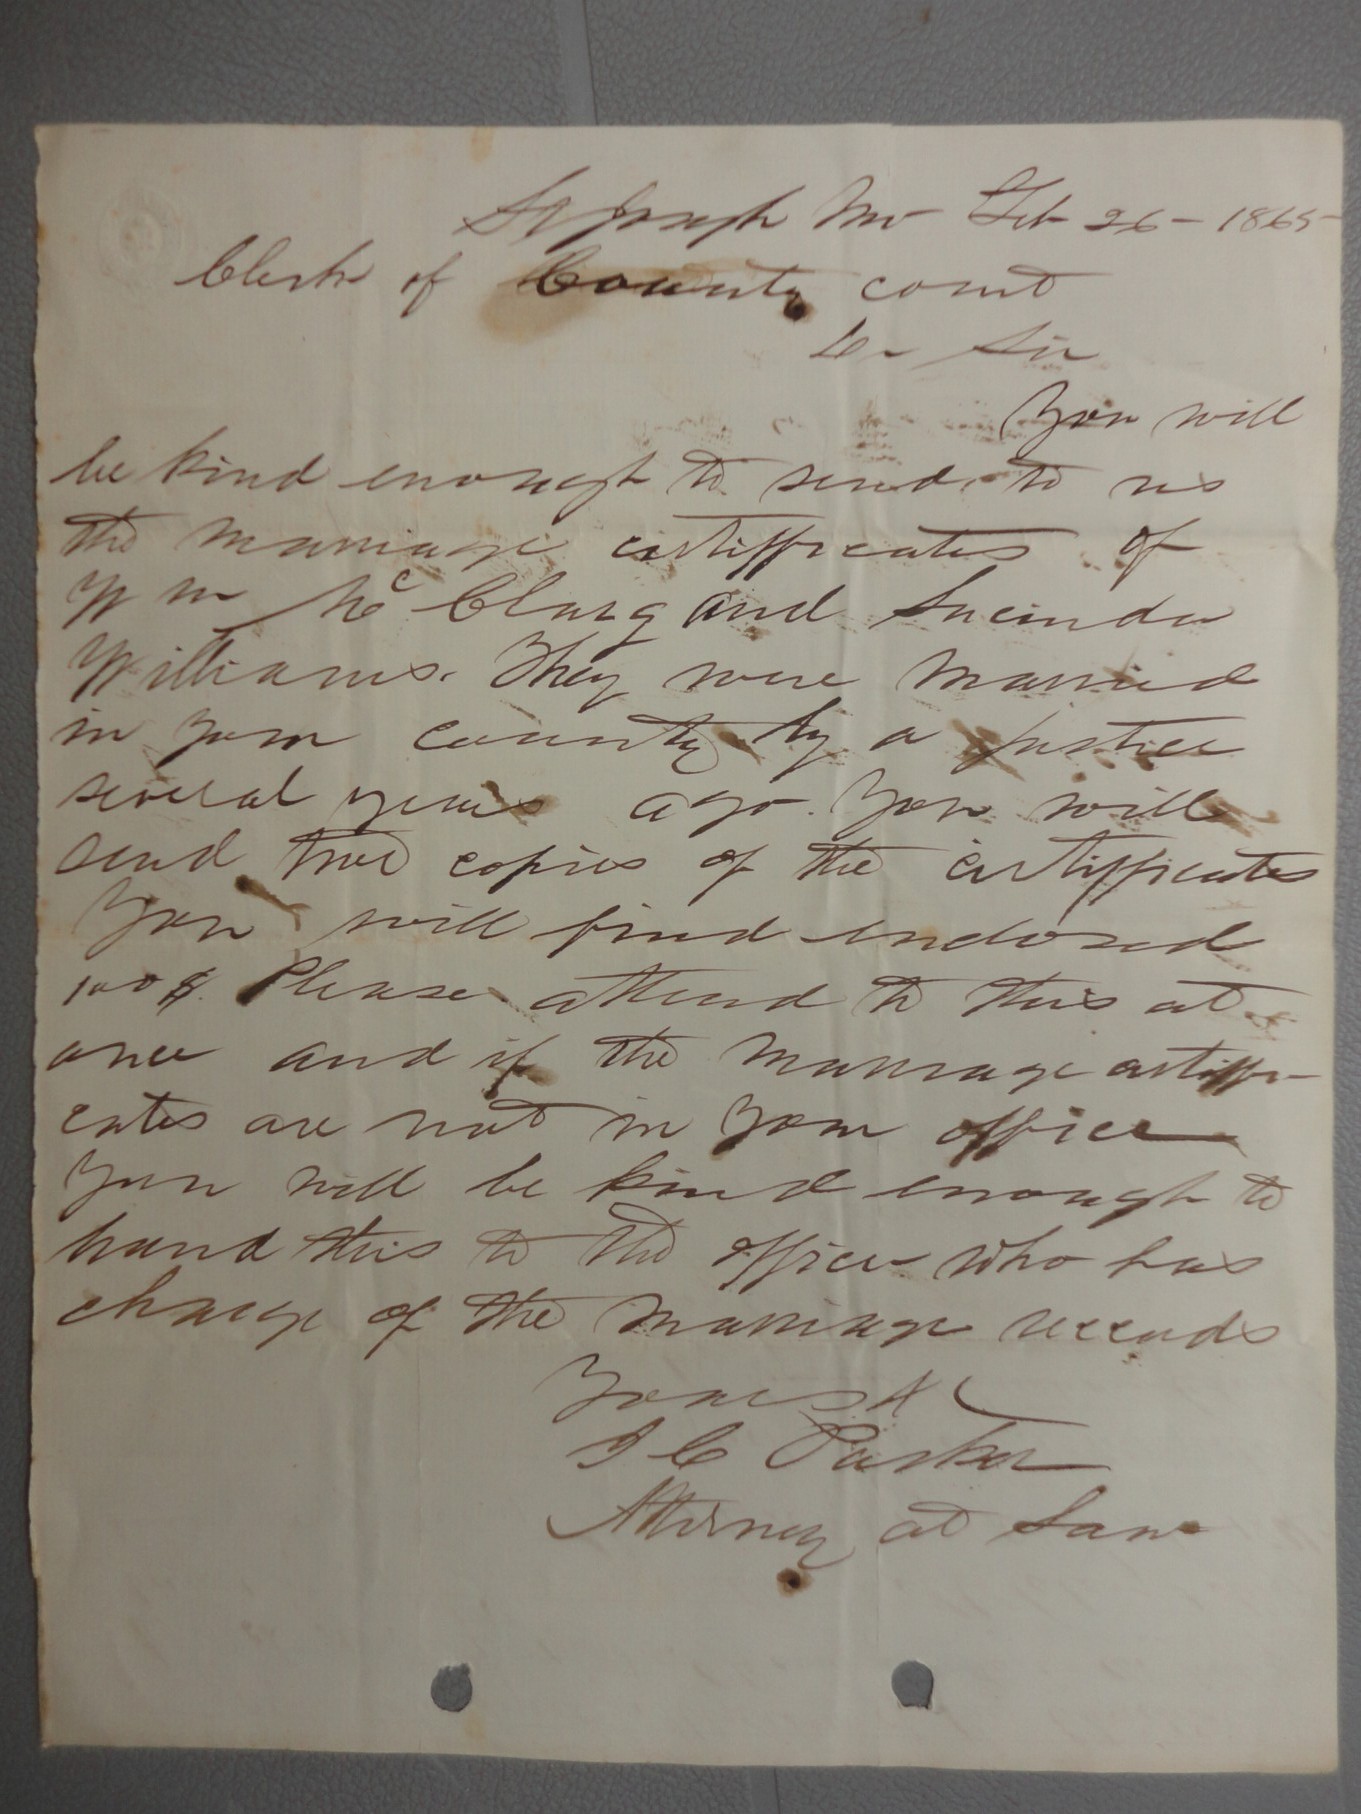 St Joseph Mo Feb 26 - 1865
Clerk of County court
Dr Sir
You will
be kind enough to send to us
the marriage certifficates of
Wm McClurg and Lucinda
Williams. They were married
in your county by a justice
several years ago. You will
send two copies of the certifficates
You will find enclosed
100$. Please attend to this at
once and if the marriage certiffi-
cates are not in your office
you will be kind enough to
hand this to the officer who has
charge of the marriage records
Yours &c
I C Parker
Attorney at Law